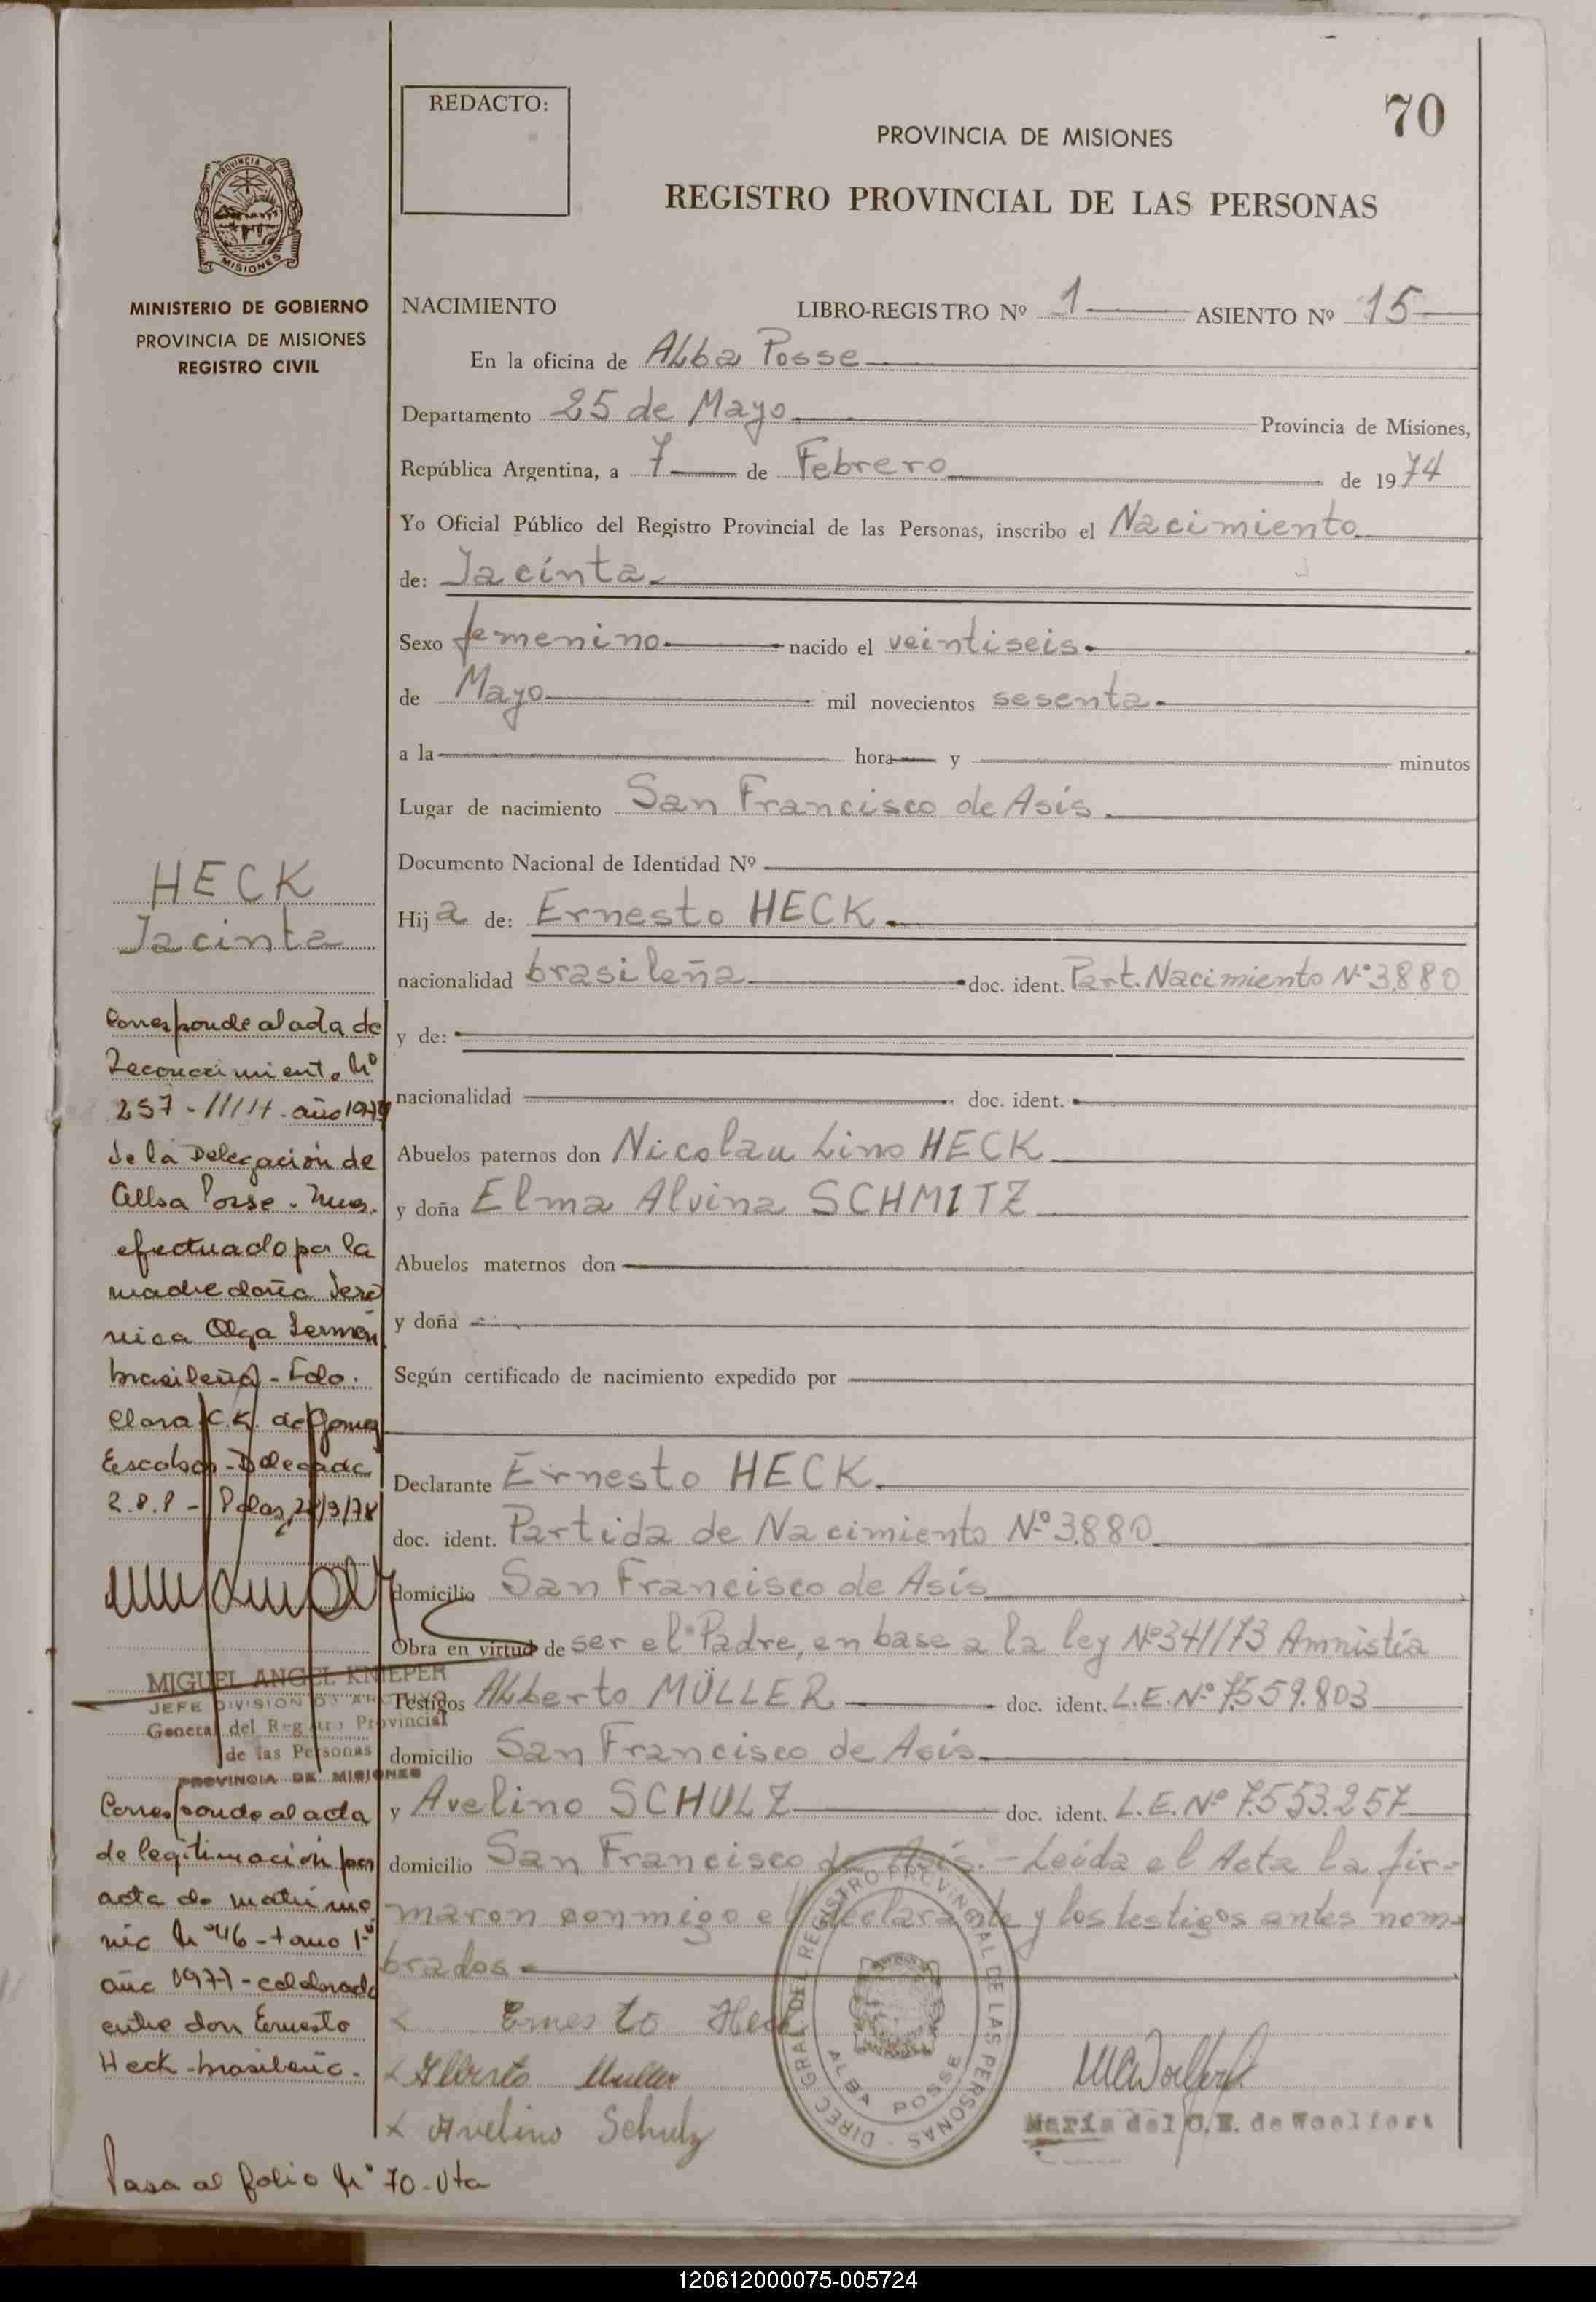 70
REDACTO:
PROVINCIA DE MISIONES
REGISTRO PROVINCIAL DE LAS PERSONAS
PROVINCIA DE
MISIONES
MINISTERIO DE GOBIERNO
PROVINCIA DE MISIONES
REGISTRO CIVIL
NACIMIENTO LIBRO-REGISTRO Nº 1 ASIENTO Nº 15
En la oficina de Alba Posse
Departamento 25 de Mayo Provincia de Misiones,
República Argentina, a 7 de Febrero de 1974
Yo Oficial Público del Registro Provincial de las Personas, inscribo el Nacimiento
de: Jacinta.
Sexo femenino nacido el veintiseis.
de Mayo mil novecientos sesenta.
a la hora y minutos
Lugar de nacimiento San Francisco de Asís.
Documento Nacional de Identidad Nº
Hija de: Ernesto HECK.
nacionalidad brasileña doc. ident. Part. Nacimiento Nº 3.880
y de:
nacionalidad doc. ident.
Abuelos paternos don Nicolau Lino HECK
y doña Elma Alvina SCHMITZ
Abuelos maternos don
y doña
Según certificado de nacimiento expedido por
Declarante Ernesto HECK.
doc. ident. Partida de Nacimiento Nº 3.880
domicilio San Francisco de Asís
Obra en virtud de ser el Padre, en base a la ley Nº 341/73 Amnistía
Testigos Alberto MÜLLER doc. ident. L.E. Nº 7.559.803
domicilio San Francisco de Asís.
y Avelino SCHULZ doc. ident. L.E. Nº 7.553.257
domicilio San Francisco de Asís.- Leída el Acta la fir-
maron conmigo el declarante y los testigos antes nom-
brados.
Ernesto Heck
Alberto Muller
Avelino Schulz
DIREC. GRAL. DEL REGISTRO PROVINCIAL DE LAS PERSONAS
ALBA POSSE
María del C. E. de Woelfert
HECK
Jacinta
Corresponde al acta de
Reconocimiento Nº
257 - año 1974
de la Delegación de
Alba Posse - Mnes.
efectuado por la
madre doña Veró
nica Olga Lermen
brasileña - Fdo.
Clara C.K. de Gomez
Escobar - Delegada
R.P.P - Pdas, /9/78
MIGUEL ANGEL KNIEPER
JEFE DIVISION DE ARCHIVO
General del Registro Provincial
de las Personas
PROVINCIA DE MISIONES
Corresponde al acta
de legitimación por
acta de matrimo
nio Nº 46 - tomo 1º
año 1977 - celebrado
entre don Ernesto
Heck - brasileño.
Pasa al folio Nº 70 - Vta
120612000075-005724